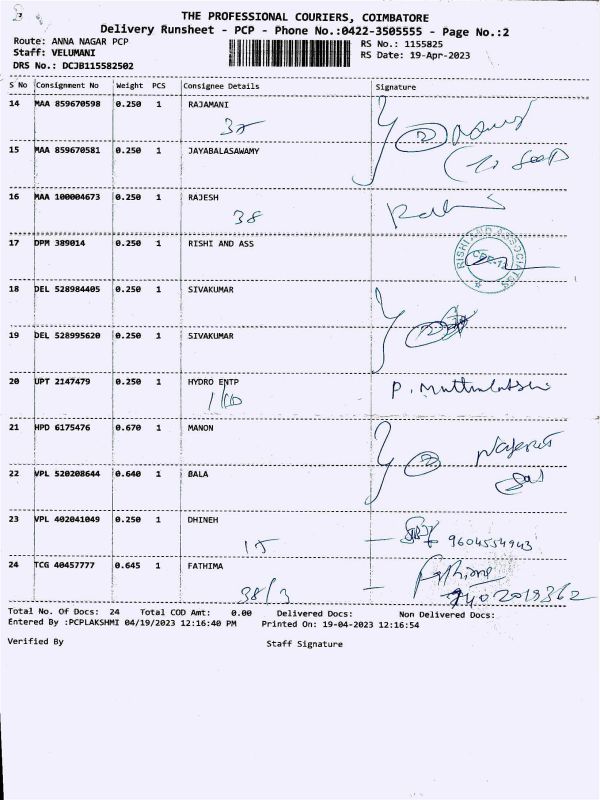 THE PROFESSIONAL COURIERS, COIMBATORE
Delivery Runsheet - PCP - Phone No.:0422-3505555 - Page No.:2
Route: ANNA NAGAR PCP
Staff: VELUMANI
DRS No.: DCJB115582502
RS No.: 1155825
RS Date: 19-Apr-2023
S No Consignment No Weight PCS Consignee Details Signature
14 MAA 859670598 0.250 1 RAJAMANI
15 MAA 859670581 0.250 1 JAYABALASAWAMY
16 MAA 100004673 0.250 1 RAJESH
38
17 DPM 389014 0.250 1 RISHI AND ASS
RISHI AND ASSOCIATES
18 DEL 528984405 0.250 1 SIVAKUMAR
19 DEL 528995620 0.250 1 SIVAKUMAR
20 UPT 2147479 0.250 1 HYDRO ENTP
P. Muthulatshmi
21 HPD 6175476 0.670 1 MANON
22 VPL 520208644 0.640 1 BALA
23 VPL 402041049 0.250 1 DHINEH
15 9604554943
24 TCG 40457777 0.645 1 FATHIMA
38/3 Fathima
Total No. Of Docs: 24 Total COD Amt: 0.00 Delivered Docs: Non Delivered Docs:
Entered By :PCPLAKSHMI 04/19/2023 12:16:40 PM Printed On: 19-04-2023 12:16:54
Verified By Staff Signature